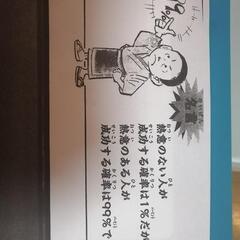 名言
熱意のない人が
成功する確率は1%だが
熱意のある人が
成功する確率は99%で